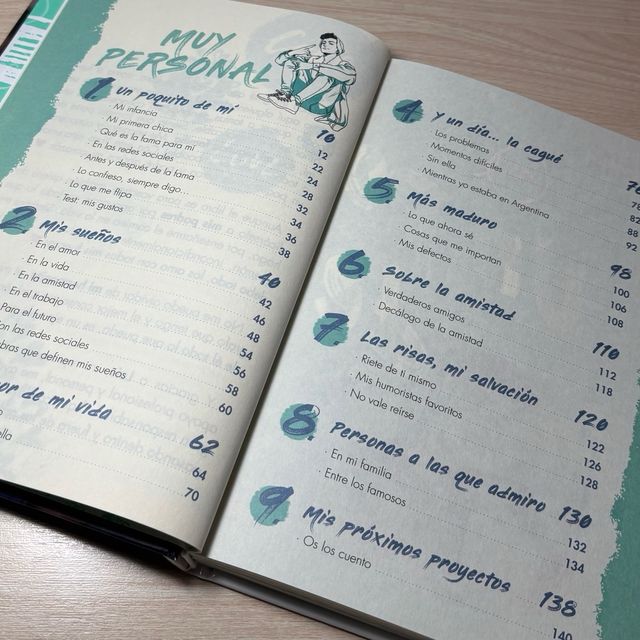 MUY
PERSONAL
1 Un poquito de mí 10
· Mi infancia 12
· Mi primera chica 22
· Qué es la fama para mí 24
· En las redes sociales 28
· Antes y después de la fama 32
· Lo confieso, siempre digo... 34
· Lo que me flipa 36
· Test: mis gustos 38
2 Mis sueños 40
· En el amor 42
· En la vida 46
· En la amistad 48
· En el trabajo 54
Para el futuro 56
on las redes sociales 58
bras que definen mis sueños 60
or de mi vida 62
o 64
ella 70
4. Y un día... la cagué
· Los problemas
· Momentos difíciles 82
· Sin ella 88
· Mientras yo estaba en Argentina 92
5. Más maduro 98
· Lo que ahora sé 100
· Cosas que me importan 106
· Mis defectos 108
6. Sobre la amistad 110
· Verdaderos amigos 112
· Decálogo de la amistad 118
7. Las risas, mi salvación 120
· Ríete de ti mismo 122
· Mis humoristas favoritos 126
· No vale reírse 128
8. Personas a las que admiro 130
· En mi familia 132
· Entre los famosos 134
9. Mis próximos proyectos 138
· Os los cuento 140